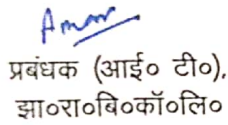 प्रबंधक (आई० टी०),
झा०रा०बि०कॉ०लि०